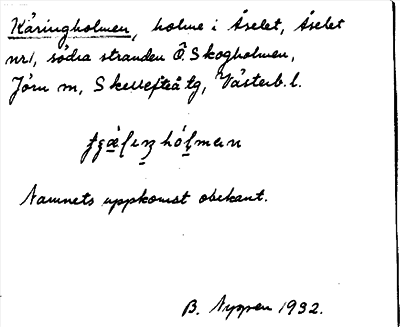 Käringholmen, holme i Åselet, Åselet
nr 1, södra stranden Ö. Skogholmen,
Jörn sn, Skellefteå tg, Västerb. l.
Namnets uppkomst obekant.
B. Nyppen 1932.